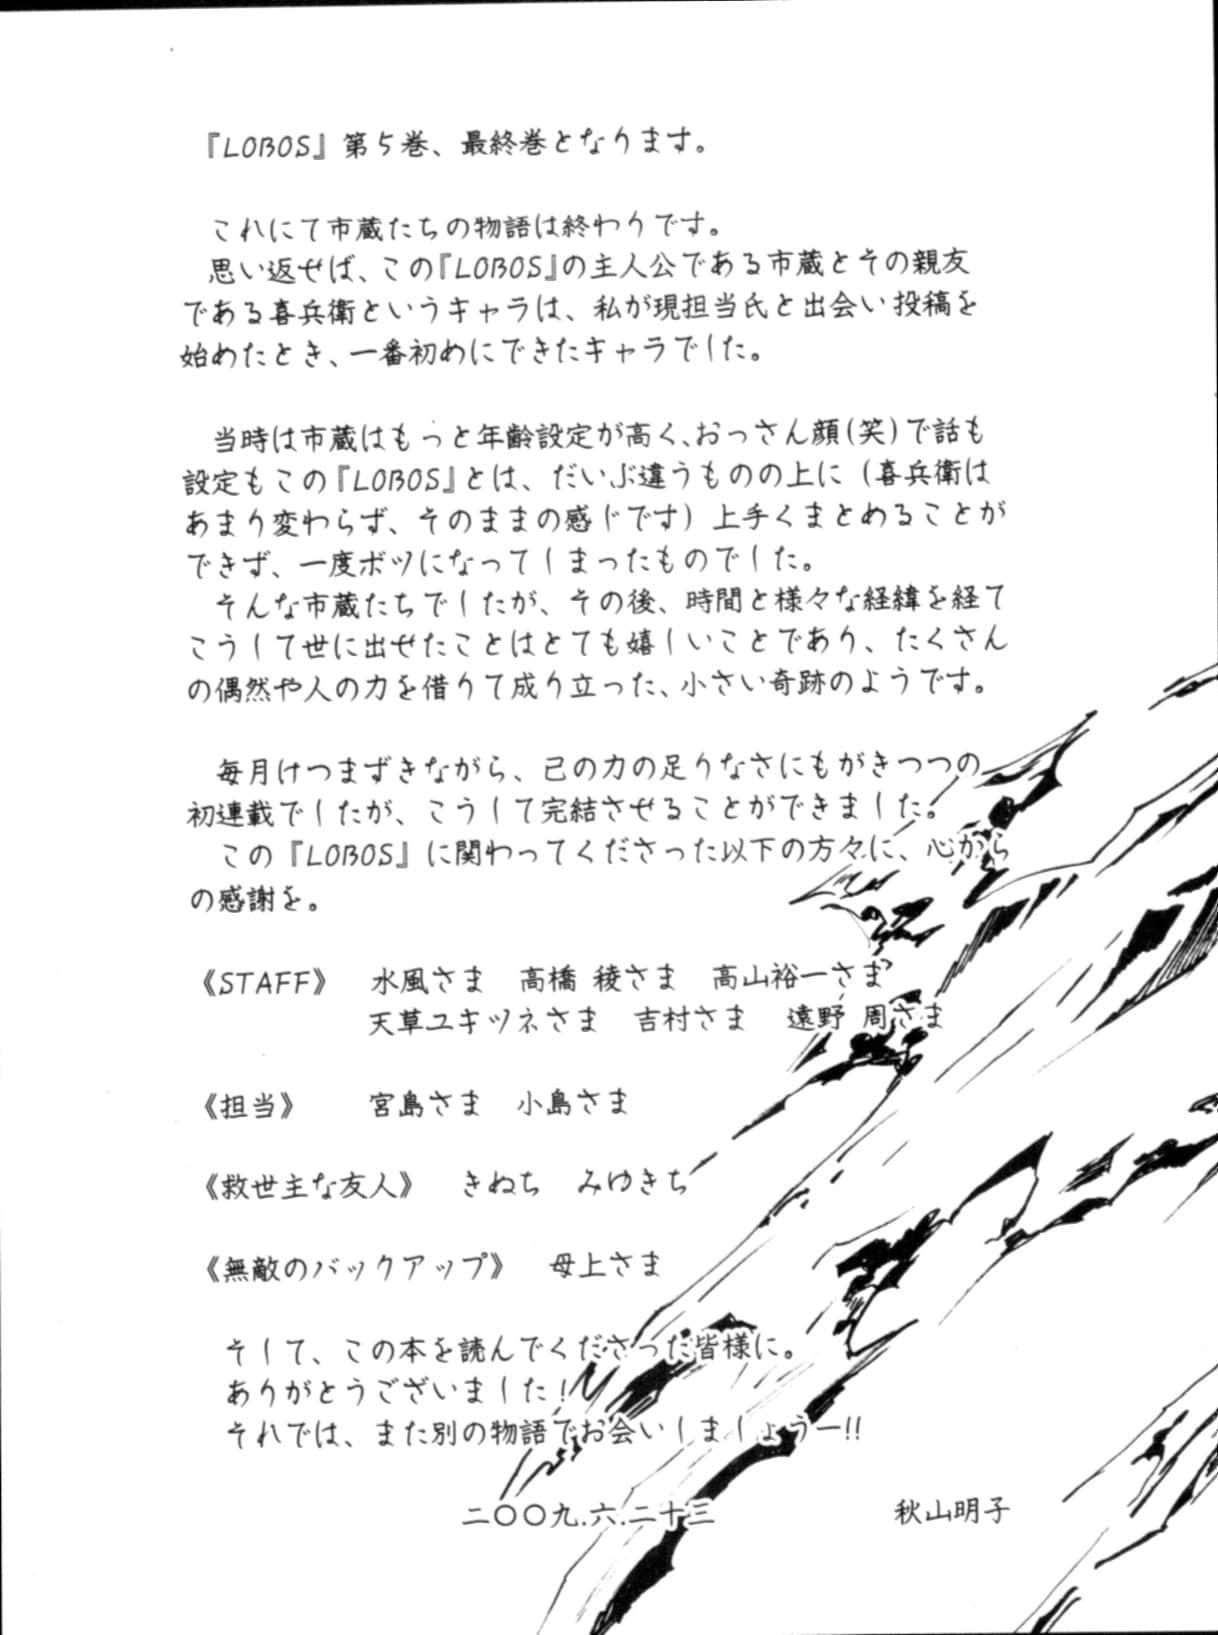 『LOBOS』第5巻、最終巻となります。
これにて市蔵たちの物語は終わりです。
思い返せば、この『LOBOS』の主人公である市蔵とその親友
である喜兵衛というキャラは、私が現担当氏と出会い投稿を
始めたとき、一番初めにできたキャラでした。
当時は市蔵はもっと年齢設定が高く、おっさん顔(笑)で話も
設定もこの『LOBOS』とは、だいぶ違うものの上に(喜兵衛は
あまり変わらず、そのままの感じです)上手くまとめることが
できず、一度ボツになってしまったものでした。
そんな市蔵たちでしたが、その後、時間と様々な経緯を経て
こうして世に出せたことはとても嬉しいことであり、たくさん
の偶然や人の力を借りて成り立った、小さい奇跡のようです。
毎月けつまずきながら、己の力の足りなさにもがきつつの
初連載でしたが、こうして完結させることができました。
この『LOBOS』に関わってくださった以下の方々に、心から
の感謝を。
《STAFF》 水風さま 高橋 稜さま 高山裕一さま
天草ユキツネさま 吉村さま 遠野 周さま
《担当》 宮島さま 小島さま
《救世主な友人》 きぬち みゆきち
《無敵のバックアップ》 母上さま
そして、この本を読んでくださった皆様に。
ありがとうございました!
それでは、また別の物語でお会いしましょうー!!
二〇〇九.六.二十三 秋山明子